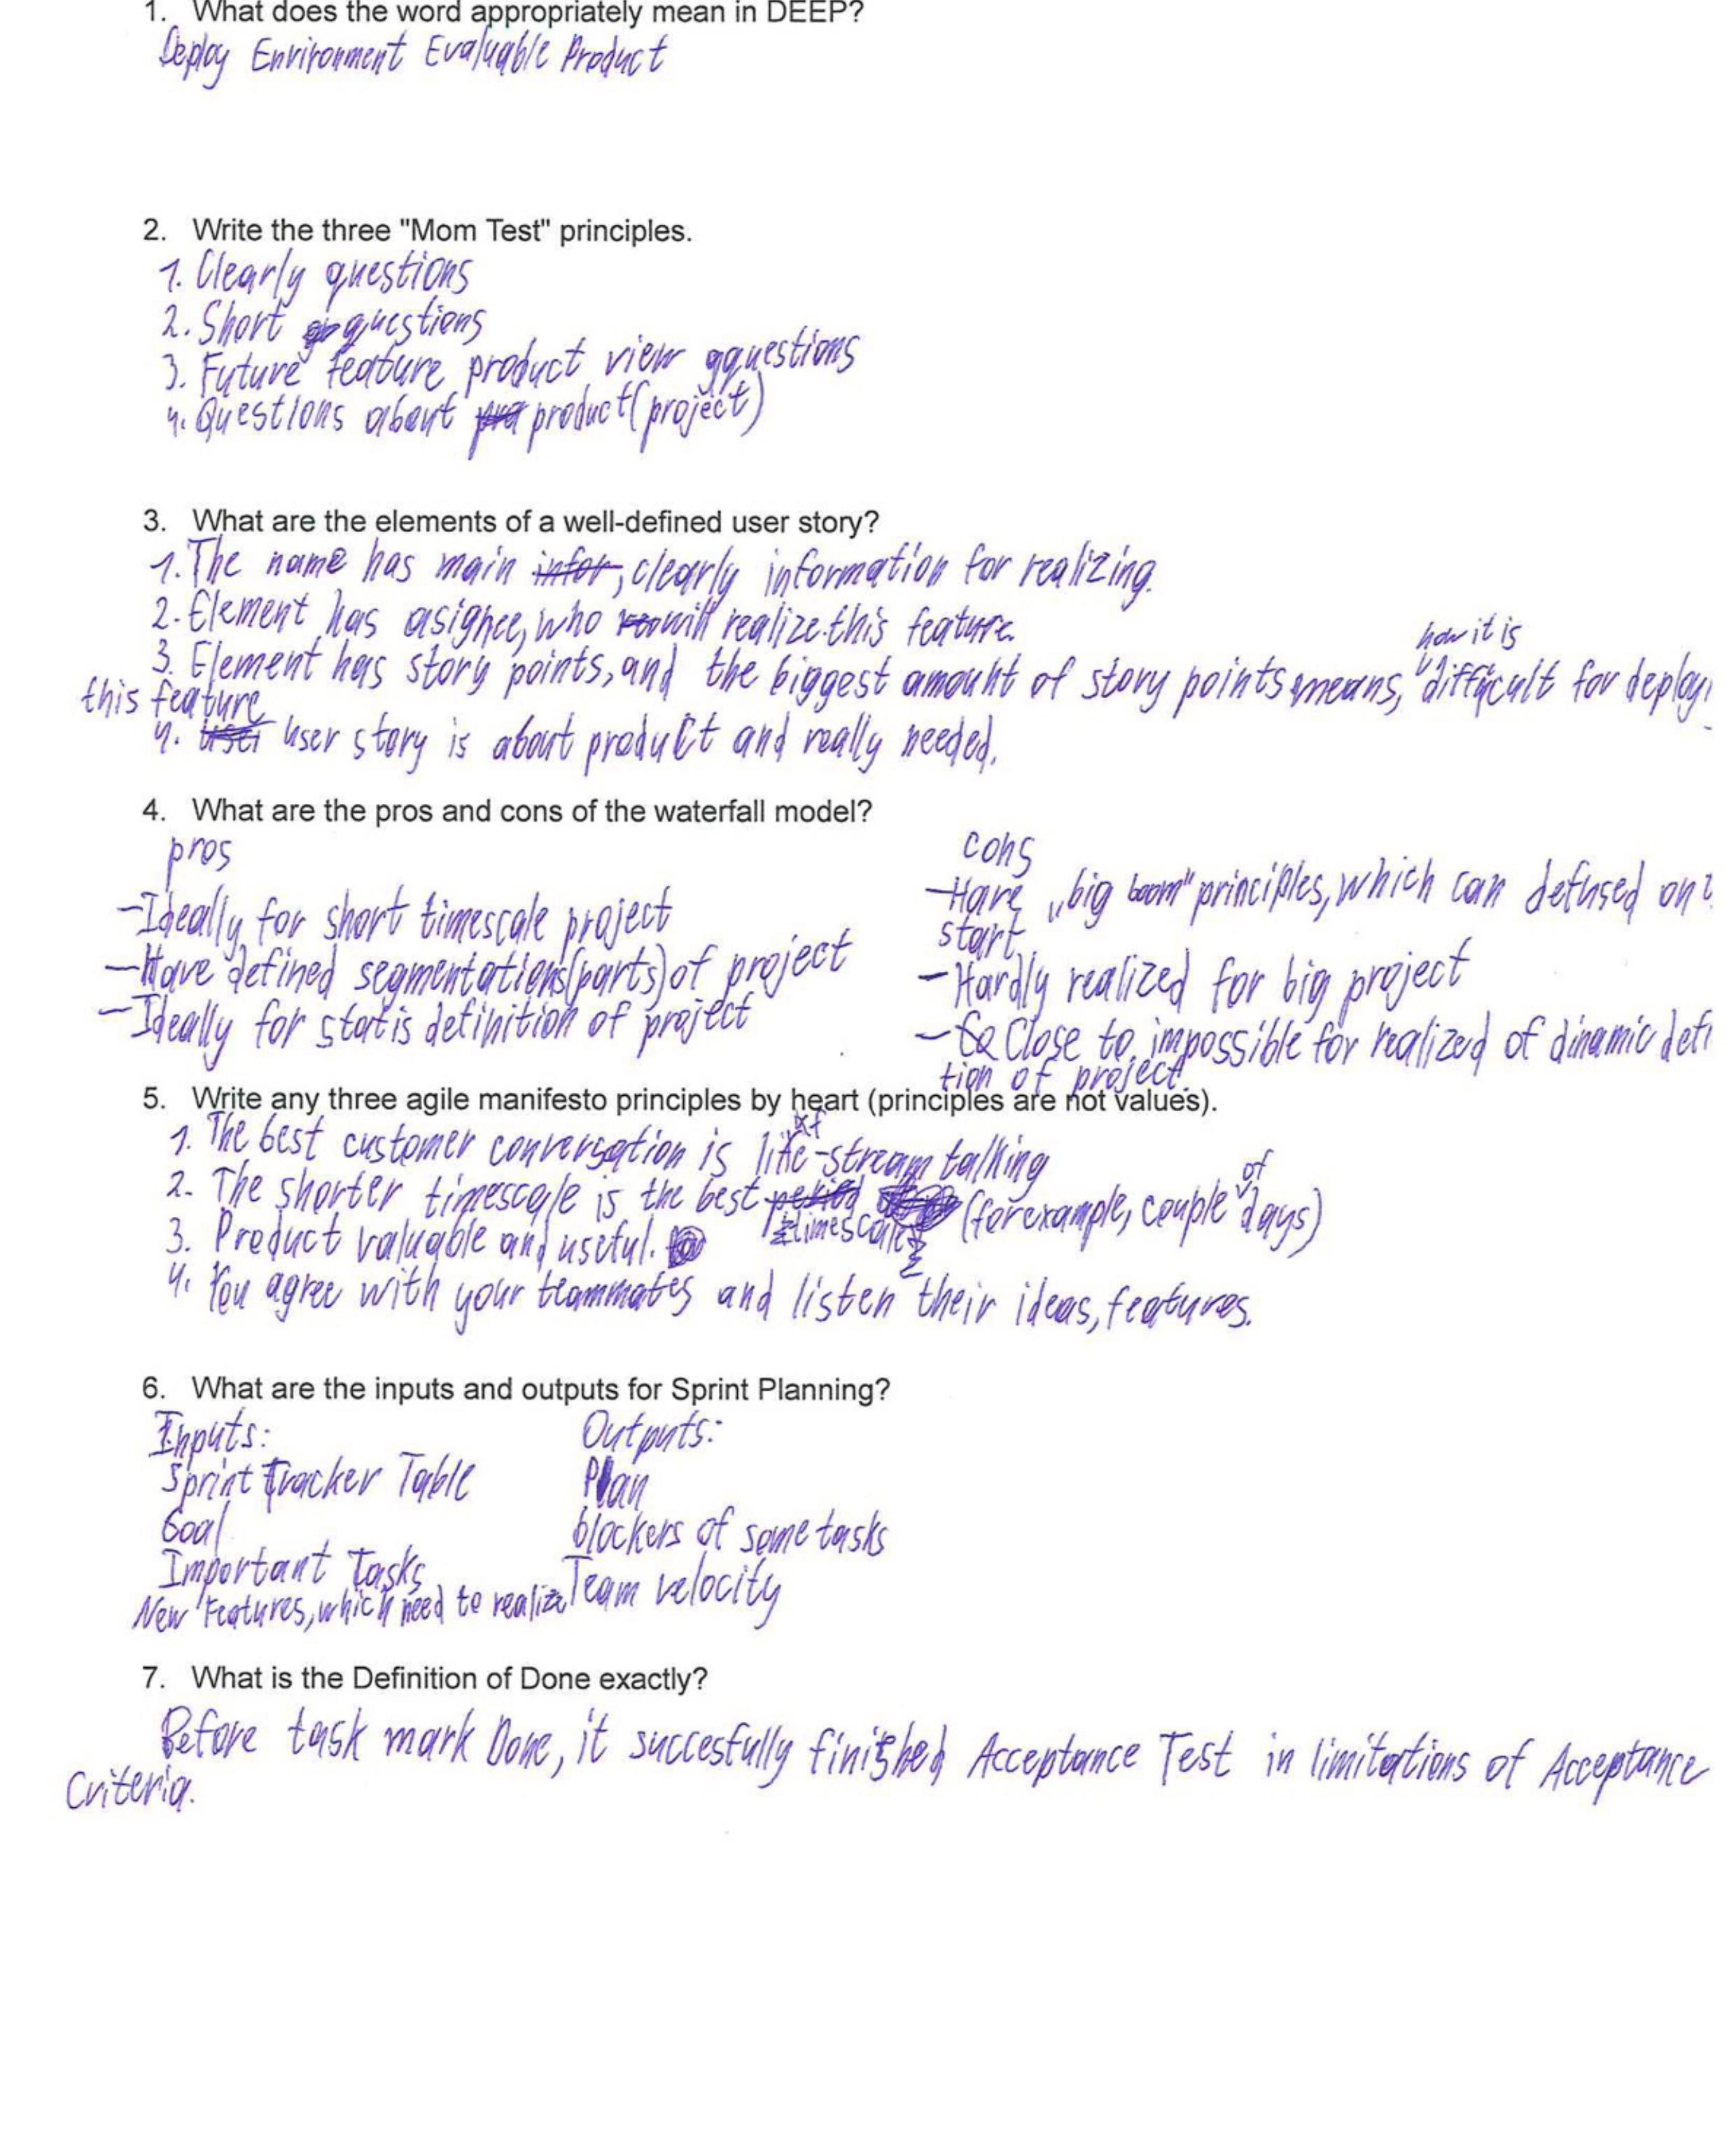 1. What does the word appropriately mean in DEEP?
Deploy Environment Evaluable Product
2. Write the three "Mom Test" principles.
1. Clearly questions
2. Short questions
3. Future feature product view qquestions
4. Questions about product(project)
3. What are the elements of a well-defined user story?
1. The name has main infor, clearly information for realizing.
2. Element has asignee, who will realize this feature.
how it is
3. Element has story points, and the biggest amount of story points means, difficult for deploy
this feature
4. user user story is about product and really needed.
4. What are the pros and cons of the waterfall model?
pros
- Ideally for short timescale project
- Have defined segmentations(parts) of project
- Ideally for statis definition of project
cons
- Have „big boom" principles, which can defused on
start
- Hardly realized for big project
- Close to impossible for realized of dinamic defi
tion of project.
5. Write any three agile manifesto principles by heart (principles are not values).
1. The best customer conversation is life-stream talking
2. The shorter timescale is the best period timescale (for example, couple of days)
3. Product valuable and useful.
4. You agree with your teammates and listen their ideas, features.
6. What are the inputs and outputs for Sprint Planning?
Inputs:
Sprint Tracker Table
Goal
Important Tasks
New Features, which need to realize
Outputs:
Plan
blockers of some tasks
Team velocity
7. What is the Definition of Done exactly?
Before task mark Done, it succesfully finished Acceptance Test in limitations of Acceptance
Criteria.